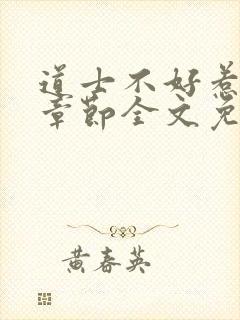 道士不好惹
章節全文免
黄春英